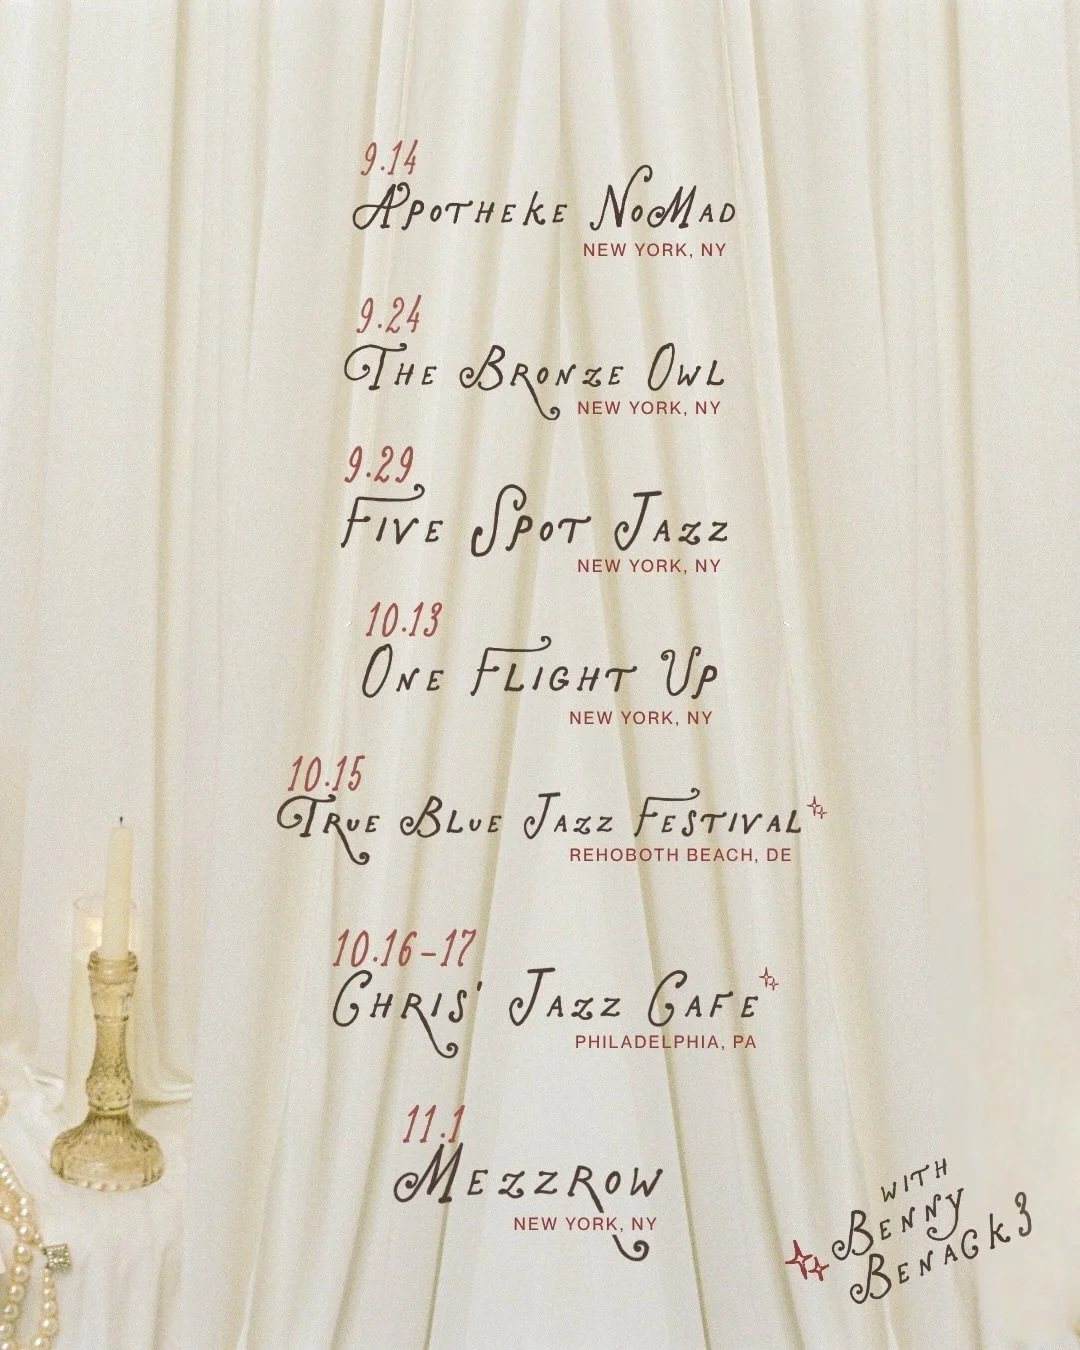 9.14
Apotheke NoMad
NEW YORK, NY
9.24
The Bronze Owl
NEW YORK, NY
9.29
Five Spot Jazz
NEW YORK, NY
10.13
One Flight Up
NEW YORK, NY
10.15
True Blue Jazz Festival
REHOBOTH BEACH, DE
10.16-17
Chris' Jazz Cafe
PHILADELPHIA, PA
11.1
Mezzrow
NEW YORK, NY
with
Benny
Benack 3